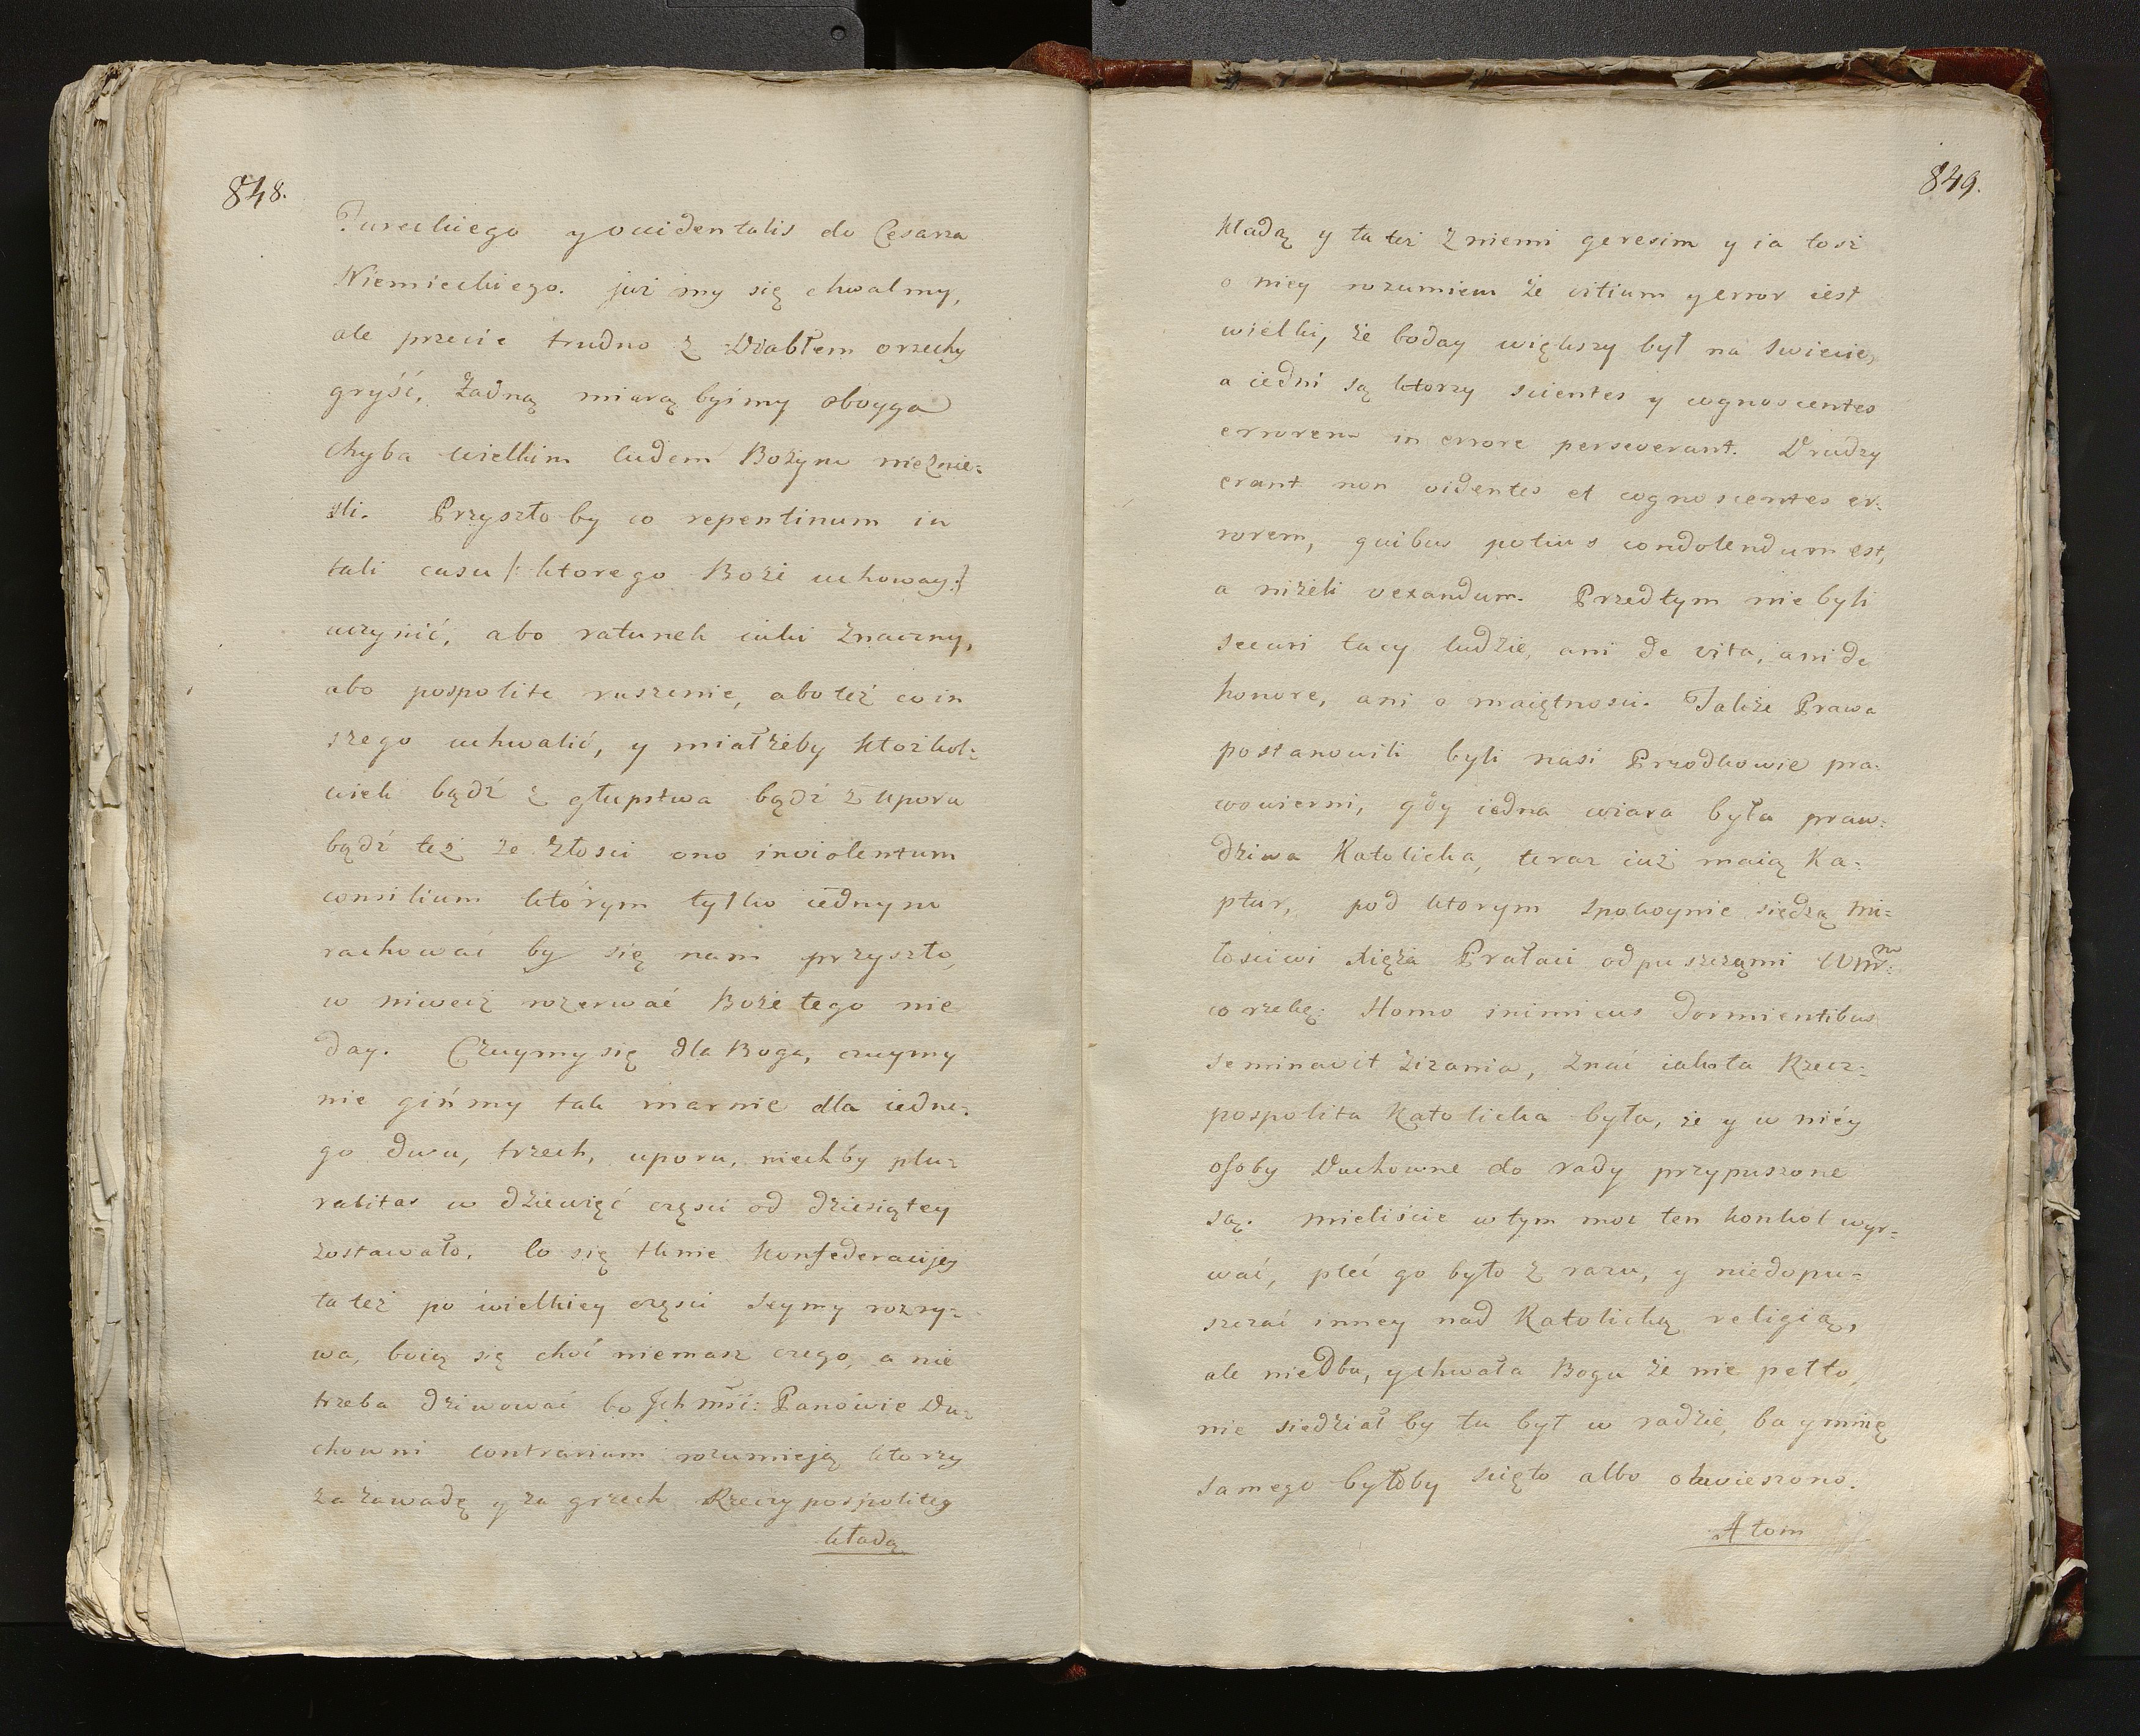 848.
Tureckiego y occidentalis do Cesarza
Niemieckiego. już my się chwalmy,
ale przecie trudno z Diabłem orzechy
gryść, żadną miarą byśmy oboyga
chyba wielkim cudem Bożym nieznie-
śli. Przyszło by co repentinum in
tali casu /: ktorego Boże uchoway:/
uczynić, abo ratunek iaki znaczny,
abo pospolite ruszenie, abo też co in
szego uchwalić, y miałżeby ktożkol-
wiek bądź z głupstwa bądź z uporu
bądź też ze złości ono inviolentum
consilium którym tylko iednym
rachować by się nam przyszło,
w niwecz rozerwać Boże tego nie
day. Czuymy się dla Boga, czuymy
nie gińmy tak marnie dla iedne-
go dwu, trzech, uporu, niechby plu-
ralitas w dziewięć częsci od dziesiątey
zostawało. Co się tknie Konfederacijey
ta też po wielkiey częsci Seymy rozry-
wa, boią się choć niemasz czego, a nie
trzeba dziwować bo Jch mśći: Panowie Du-
chowni contrarium rozumieją ktorzy
za zawadę y za grzech Rzeczy pospolitey
kładą
849.
kładą y ta też z niemi geresim y ia tosz
o niey rozumiem że vitium y error iest
wielki, że boday większy był na swiecie,
a iedni są ktorzy scientes y cognoscentes
errorem in errore perseverant. Drudzy
erant non videntes et cognoscentes er-
rorem, quibus potius condolendum est,
a niżeli vexandum. Przedtym nie byli
securi tacy ludzie, ani de vita, ani de
honore, ani o maiętnosci. Także Prawa
postanowili byli nasi Przodkowie pra-
wowierni, gdy iedna wiara była praw-
dziwa Katolicka, teraz iuż maią Ka-
ptur, pod ktorym spokoynie siedzą Mi-
łosciwi Xięża Prałaci odpuszczą mi Wm:
co rzekę: Homo inimicus dormientibus
seminavit zizania, znać iako ta Rzecz-
pospolita Katolicka była, że y w niéy
osoby Duchowne do rady przypuszone
są. mieliście w tym moc ten konkol wyr-
wać, pleć go było z razu, y niedopu-
szczać inney nad Katolicką religią,
ale niedba, y chwała Bogu że nie pełto,
nie siedział by tu był w radzie, ba y mnię
samego byłoby scięto albo obwieszono.
A toin